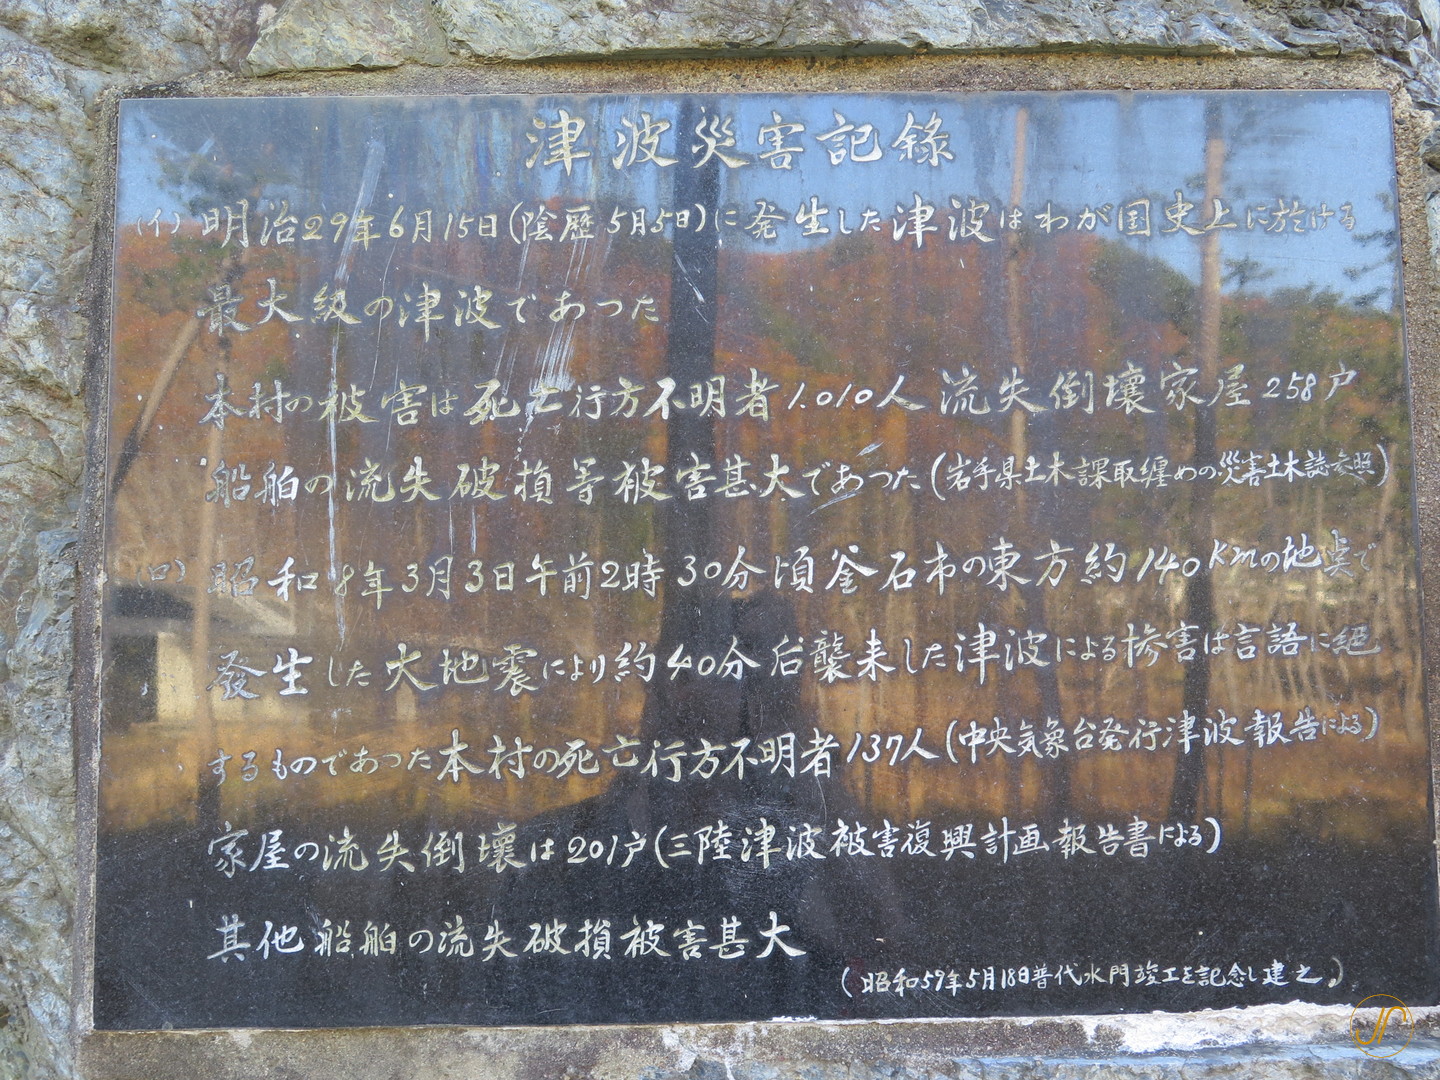 津波災害記録
(イ) 明治29年6月15日(陰歴5月5日)に発生した津波はわが国史上に於ける
最大級の津波であつた
本村の被害は死亡行方不明者1.010人 流失倒壊家屋258戸
船舶の流失破損等被害甚大であつた(岩手県土木課取纏めの災害土木誌参照)
(ロ) 昭和8年3月3日午前2時30分頃釜石市の東方約140Kmの地点で
発生した大地震により約40分后襲来した津波による惨害は言語に絶
するものであつた本村の死亡行方不明者137人(中央気象台発行津波報告による)
家屋の流失倒壊は201戸(三陸津波被害復興計画報告書による)
其他船舶の流失破損被害甚大
(昭和59年5月18日普代水門竣工を記念し建之。)